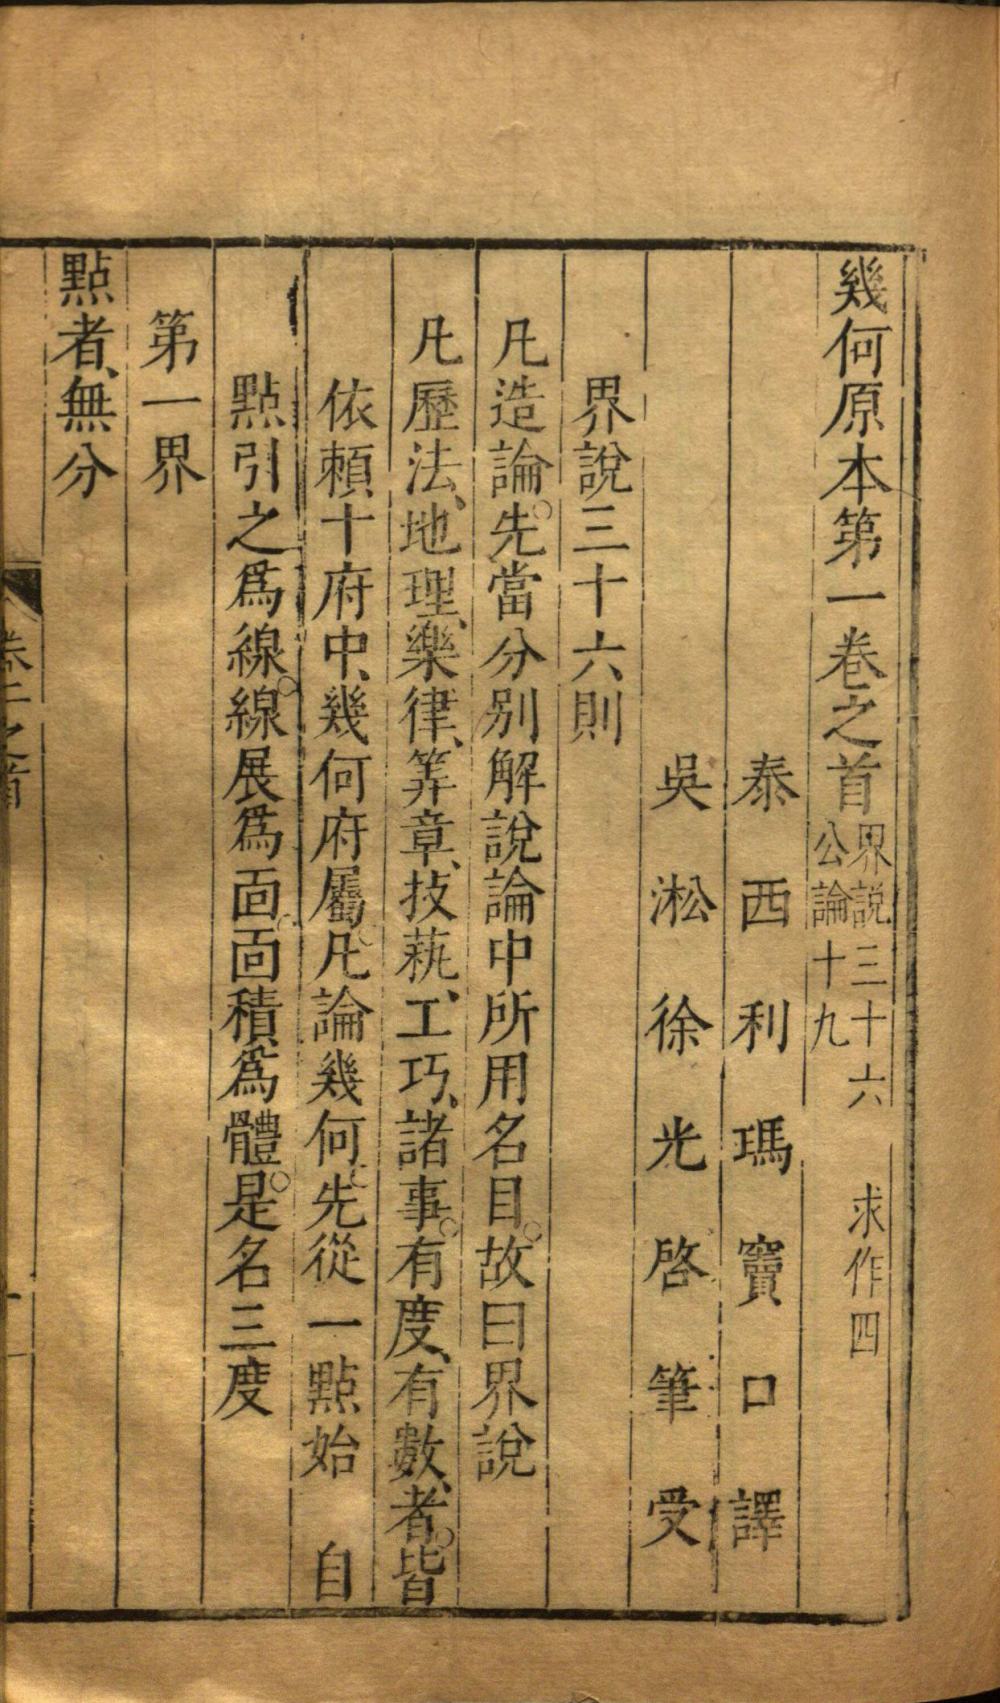 幾何原本第一卷之首 界說三十六 求作四
公論十九
泰西利瑪竇口譯
吳淞徐光啓筆受
界說三十六則
凡造論。先當分別解說論中所用名目。故曰界說
凡歷法、地理、樂律、筭章、技蓺、工巧、諸事。有度、有數、者。皆
依賴、十府中、幾何府屬。凡論幾何。先從一點始 自
點引之爲線。線展爲面。面積爲體。是名三度
第一界
點者、無分